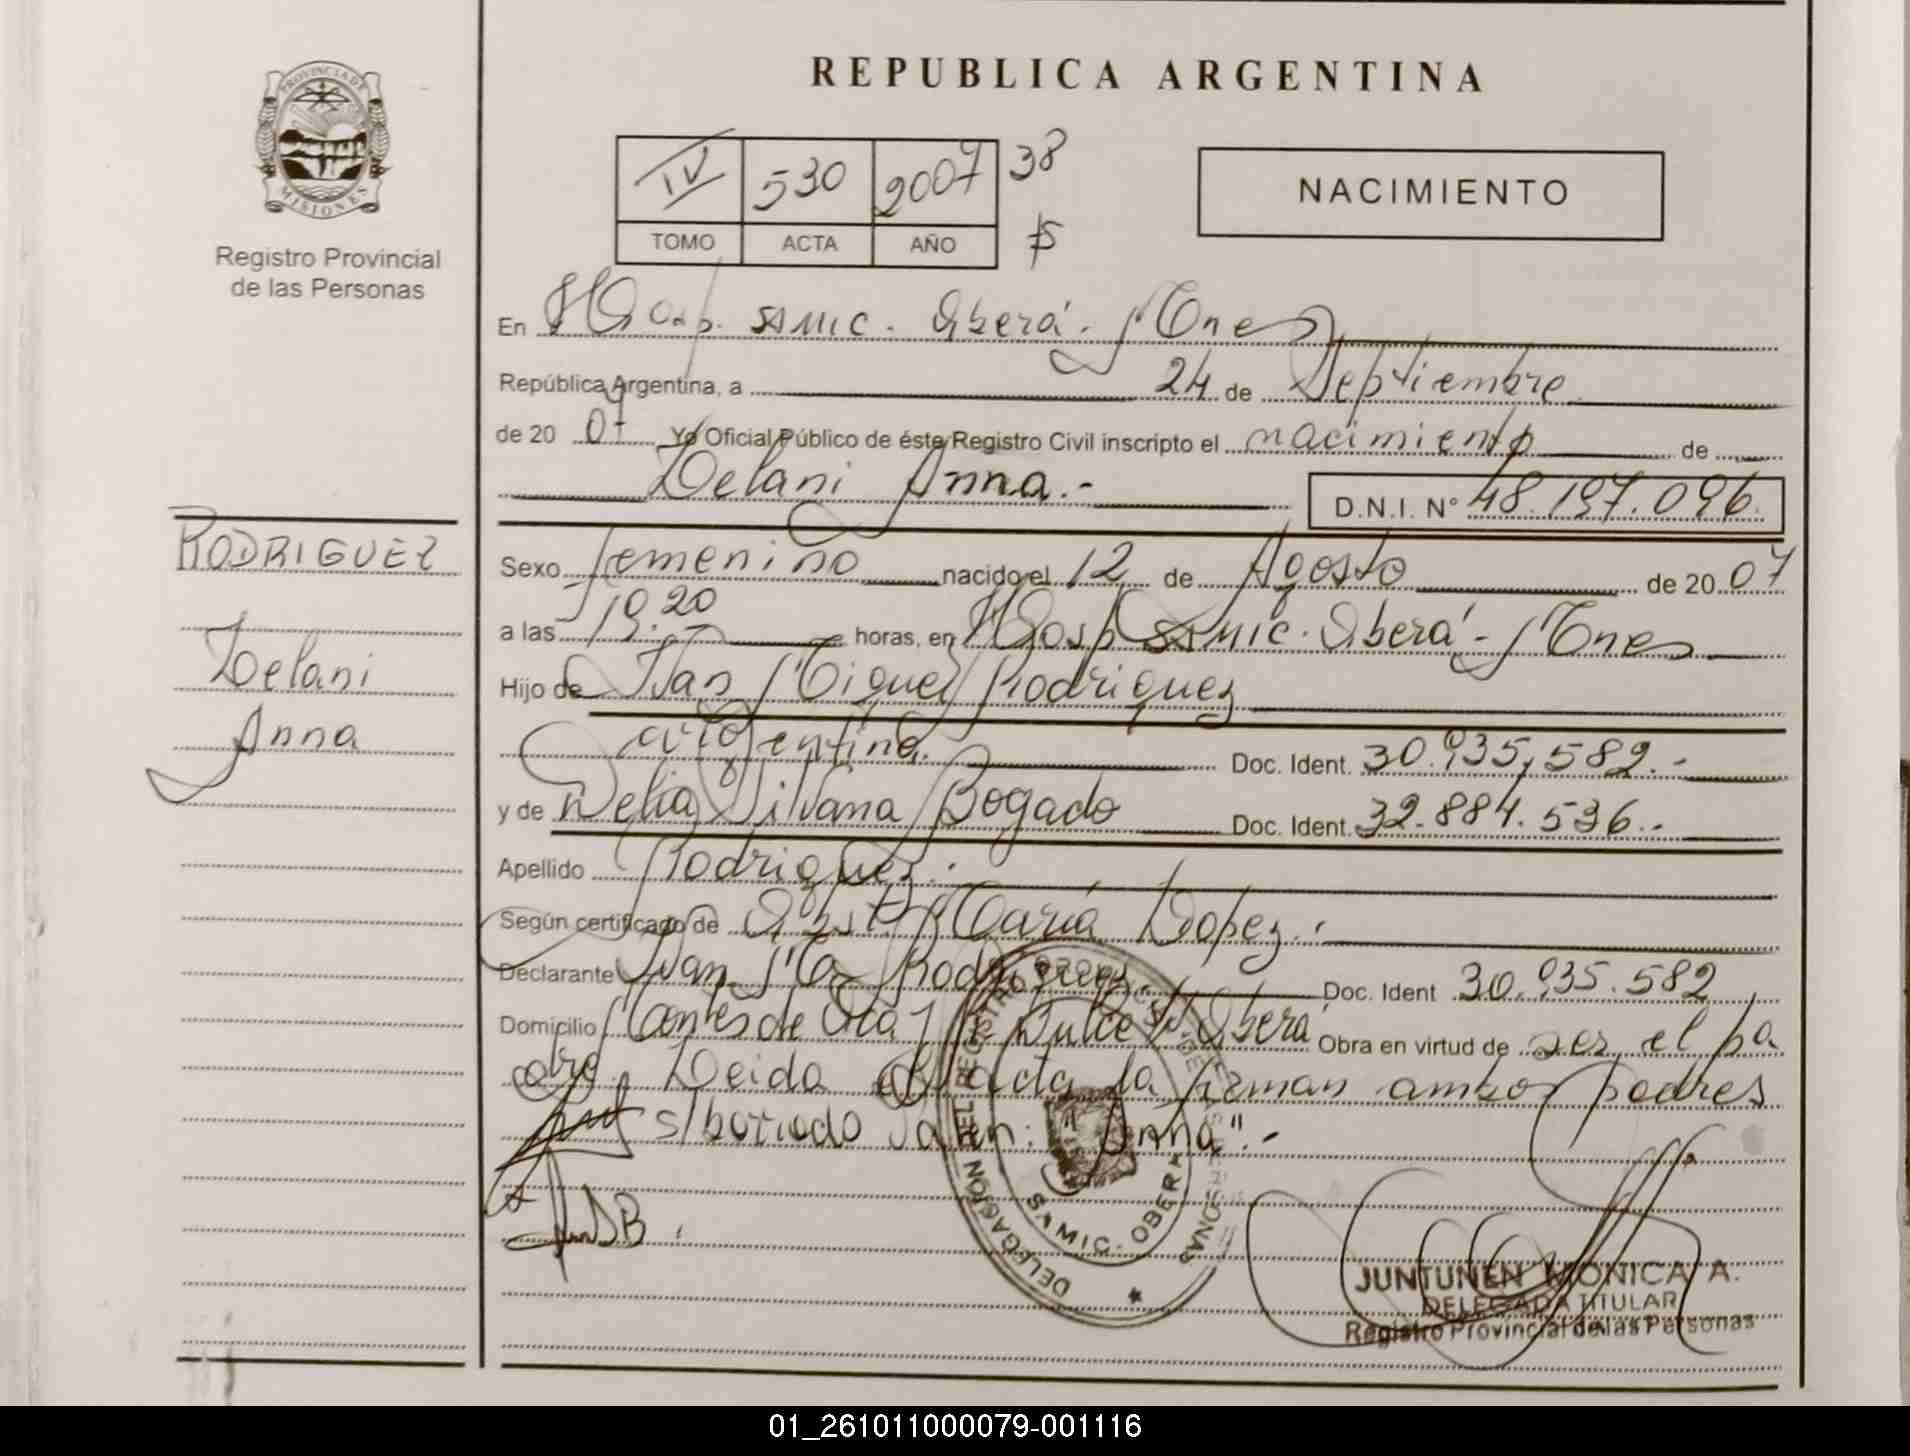 REPUBLICA ARGENTINA
PROVINCIA DE
MISIONES
Registro Provincial
de las Personas
IV 530 2007 38
TOMO ACTA AÑO
NACIMIENTO
En Hosp. SAMIC. Oberá - Mnes
República Argentina, a 24 de Septiembre
de 20 07 Yo Oficial Público de éste Registro Civil inscripto el nacimiento de
Delani Anna.-
D.N.I. N° 48.197.096.
RODRIGUEZ
Delani
Anna
Sexo femenino nacido el 12 de Agosto de 20 07
a las 19.20 horas, en Hosp SAMIC. Oberá - Mnes
Hijo de Ivan Miguel Rodriguez
argentina. Doc. Ident. 30.935.582.-
y de Delia Silvana Bogado Doc. Ident. 32.884.536.-
Apellido Rodriguez.
Según certificado de Obst. María Lopez.-
Declarante Ivan M. Rodriguez.- Doc. Ident 30.935.582
Domicilio Montes de Oca y Dulce Oberá Obra en virtud de ser el pa
dre. Leida el acta la firman ambos padres
s/borrado Valen: "Anna".-
DELEGACIÓN DEL REGISTRO
SAMIC - OBERA
JUNTUNEN MONICA A.
DELEGADA TITULAR
Registro Provincial de las Personas
01_261011000079-001116